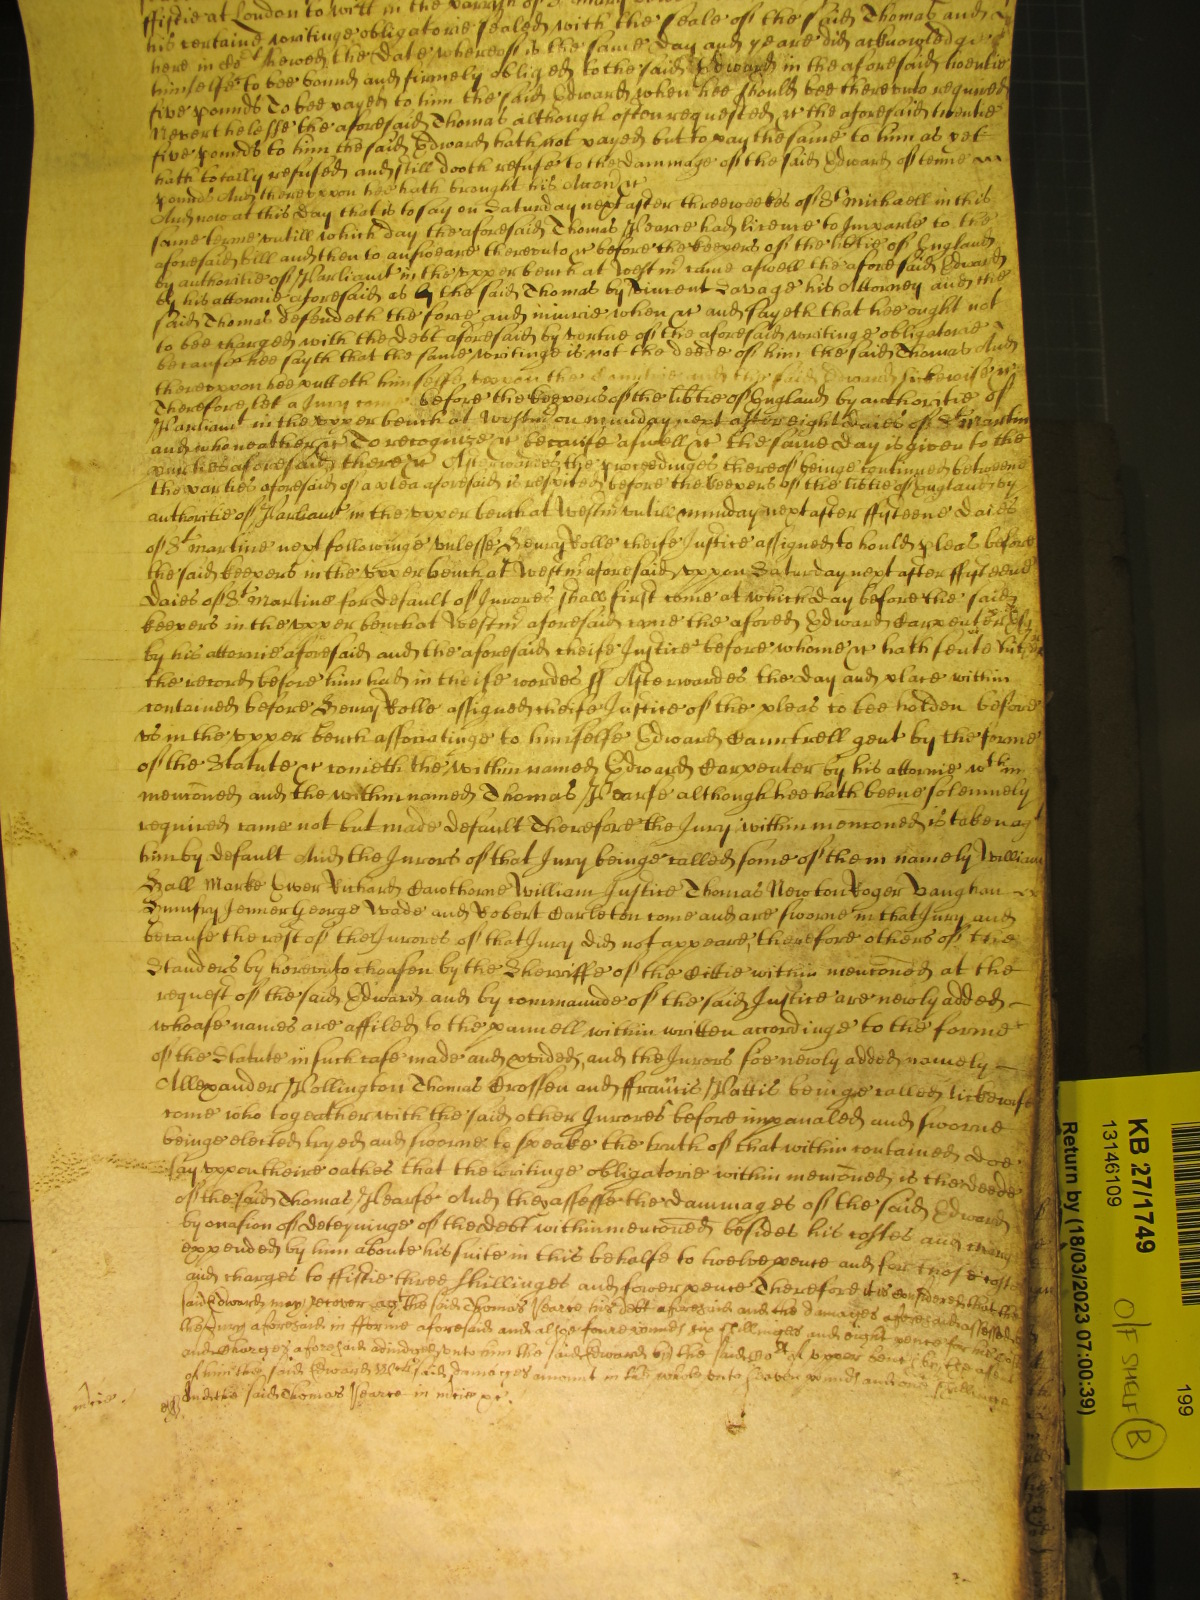 ffiftie at London to witt in the parrish of St Mary
his certaine writinge obligatorie sealed with the seale of the said Thomas and
here in Cort shewed the date whereof is the same day and yeare did acknowledge
himselfe to bee bound and firmely obliged to the said Edward in the aforesaid twentie
five pounds To bee payed to him the said Edward when hee should bee thereunto required
Neverthelesse the aforesaid Thomas although often requested &c the aforesaid twentie
five pounds to him the said Edward hath not payed but to pay the same to him as yet
hath totally refused and still doth refuse to the dammage of the said Edward of tenne
pounds And thereuppon hee hath brought his Accon &c
And now at this day that is to say on Saturday next after three weekes of St Michaell in this
same terme untill which day the aforesaid Thomas Pearce had licence to Imparle to the
aforesaid bill and then to answeare thereunto &c before the keepers of the lib̃tie of England
by authoritie of Parliamt in the upper bench at Westm̃ came aswell the aforesaid Edward
by his attornie aforesaid as the said Thomas by Vincent Savage his Attorney and the
said Thomas defendeth the force and iniurie when &c and sayeth that hee ought not
to bee charged with the debt aforesaid by vertue of the aforesaid writinge obligatorie
because hee sayth that the same writinge is not the deede of him the said Thomas And
thereuppon hee putteth himselfe uppon the Countrie and the said Edward likewise &c
Therefore let a Jury come before the keepers of the lib̃tie of England by authoritie of
Parliamt in the upper bench at Westm̃ on munday next after eight daies of St Martin
and who neither &c To recognize &c because aswell &c the same day is given to the
parties aforesaid there &c Afterwardes the proceedinges thereof beinge continued betweene
the parties aforesaid of a plea aforesaid is respited before the keepers of the lib̃tie of England by
authoritie of Parliamt in the upper bench at Westm̃ untill munday next after ffyfteene daies
of St Martine next followinge unlesse Henry Rolle cheife Justice assigned to hould pleas before
the said keepers in the upper bench at Westm̃ aforesaid uppon Saturday next after ffyfteene
daies of St Martine for default of Jurores shall first come at which day before the said
keepers in the upper bench at Westm̃ aforesaid came the afored Edward Carpenter
by his attornie aforesaid and the aforesaid cheife Justice before whome &c hath sente hither
the record before him had in theise wordes ss Afterwardes the day and place within
contained before Henry Rolle assigned cheife Justice of the pleas to bee holden before
us in the upper bench associatinge to himselfe Edward Cauntrell gent by the forme
of the Statute &c cometh the within named Edward Carpenter by his attornie wthin
menc̃oned and the within named Thomas Pearse although hee hath beene solemnely
required came not but made default Therefore the Jury within menc̃oned is taken agt
him by default And the Jurors of that Jury beinge called some of them namely William
Hall Marke Ewer Richard Cawthorne William Justice Thomas Newton Roger Vaughan
Humfry Jenner George Wade and Robert Carleton come and are sworne in that Jury and
because the rest of the Jurores of that Jury did not appeare, therefore others of the
Standers by hereunto choasen by the Sherriffe of the Cittie within menc̃oned at the
request of the said Edward and by commaunde of the said Justice are newly added
whoase names are affiled to the pannell within written accordinge to the forme
of the Statute in such case made and p̱vided, and the Jurors soe newly added namely
Allexander Pollington Thomas Crossen and ffrancis Pattis beinge called likewise
come who togeather with the said other Jurores before impanaled and sworne
beinge elected tryed and sworne to speake the truth of that within contained doe
say uppon theire oathes that the writinge obligatorie within menc̃oned is the deede
of the said Thomas Pearse And they assesse the dammages of the said Edward
by occasion of deteyninge of the debt within menc̃oned besides his costes and charges
expended by him aboute his suite in this behalfe to twelve pence and for those costes
and charges to fiftie three shillinges and fower pence Therefore it is considered that the
said Edward may recover agt the said Thomas Pearce his debt aforesaid and the damages aforesaid assessed
the Jury aforesaid in fforme aforesaid and alsoe foure pounds six shillinges and eight pence for his costes
and charges aforesaid adiudged unto him the said Edward by the said Cort of upper bench by the assent
of him the said Edward wch said damages amount in the whole unto Seaven pounds and one Shillinge
And the said Thomas Pearce in m̃cie &c.
m̃cie.
KB 27/1749
13146109
Return by (18/03/2023 07:00:39)
199
O/F SHELF B